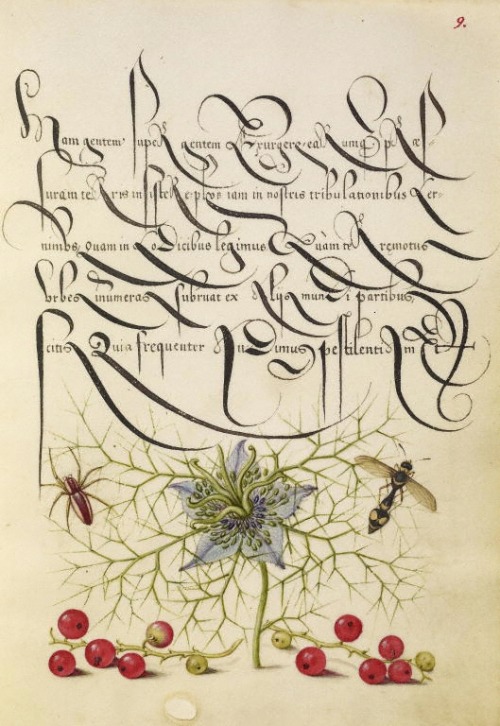 9.
Nam gentem super gentem Exurgere, earumq. pres
suram terris insistere, plus iam in nostris tribulationibus cer-
nimus, Quam in codicibus legimus Quàm terre motus
Vrbes innumeras subruat ex alys mundi partibus,
scitis Quia frequenter audiuimus Pestilentiam Et